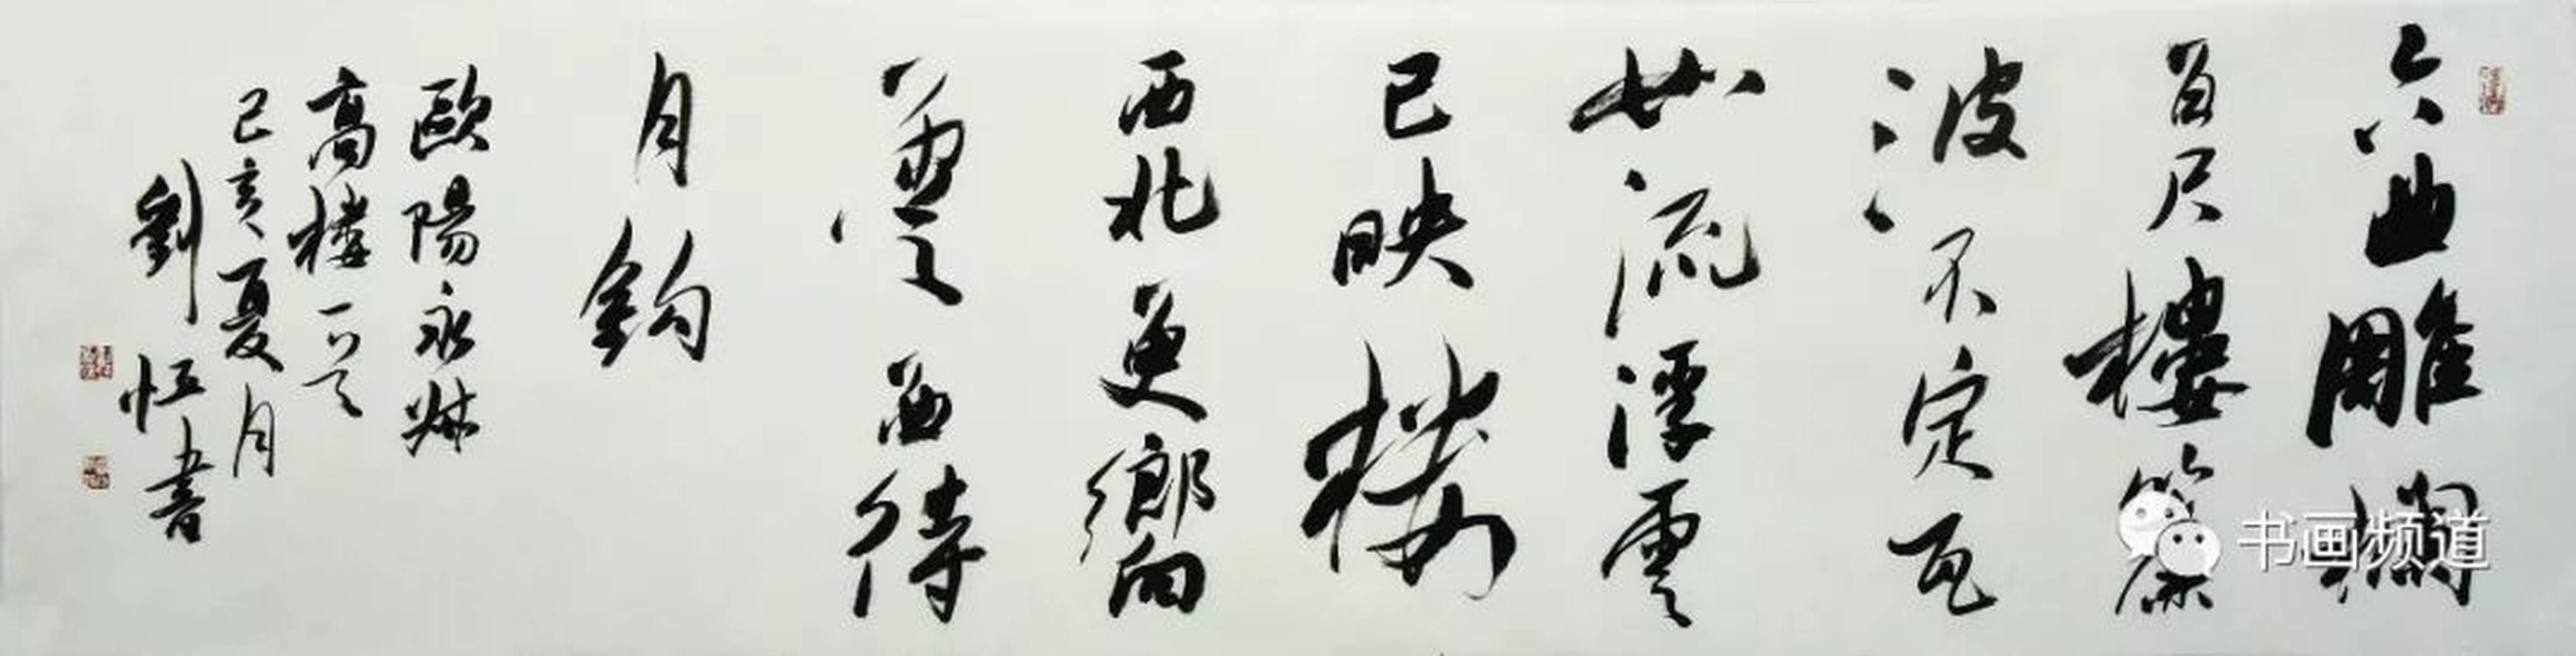 六曲雕欄
百尺樓簾
波不定瓦
如流浮雲
已映樓
西北更嚮
雲西待
月鉤
歐陽永叔
高樓一首
己亥夏月
劉恒書
书画频道